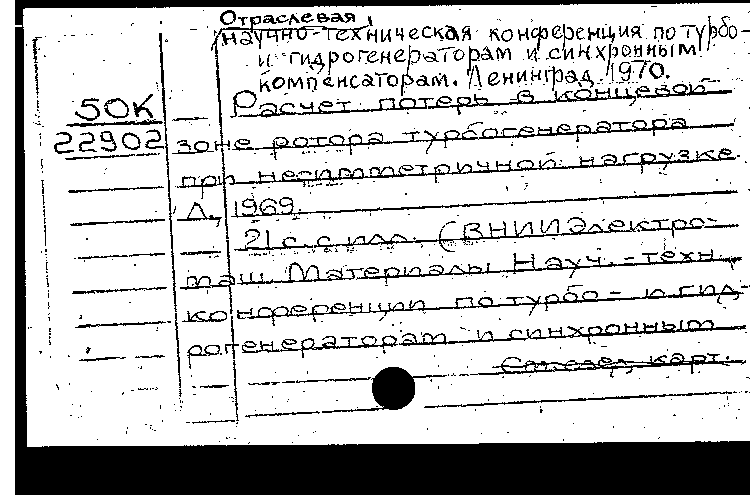 Отраслевая
научно-техническая конференция по турбо-
и гидрогенераторам и синхронным
компенсаторам. Ленинград, 1970.
50К
22902
Расчет потерь в концевой
зоне ротора турбогенератора
при несимметричной нагрузке.
Л., 1969.
21 с. с илл. (ВНИИЭлектро-
маш. Материалы Науч.-техн.
конференции по турбо- и гид-
рогенераторам и синхронным
карт.